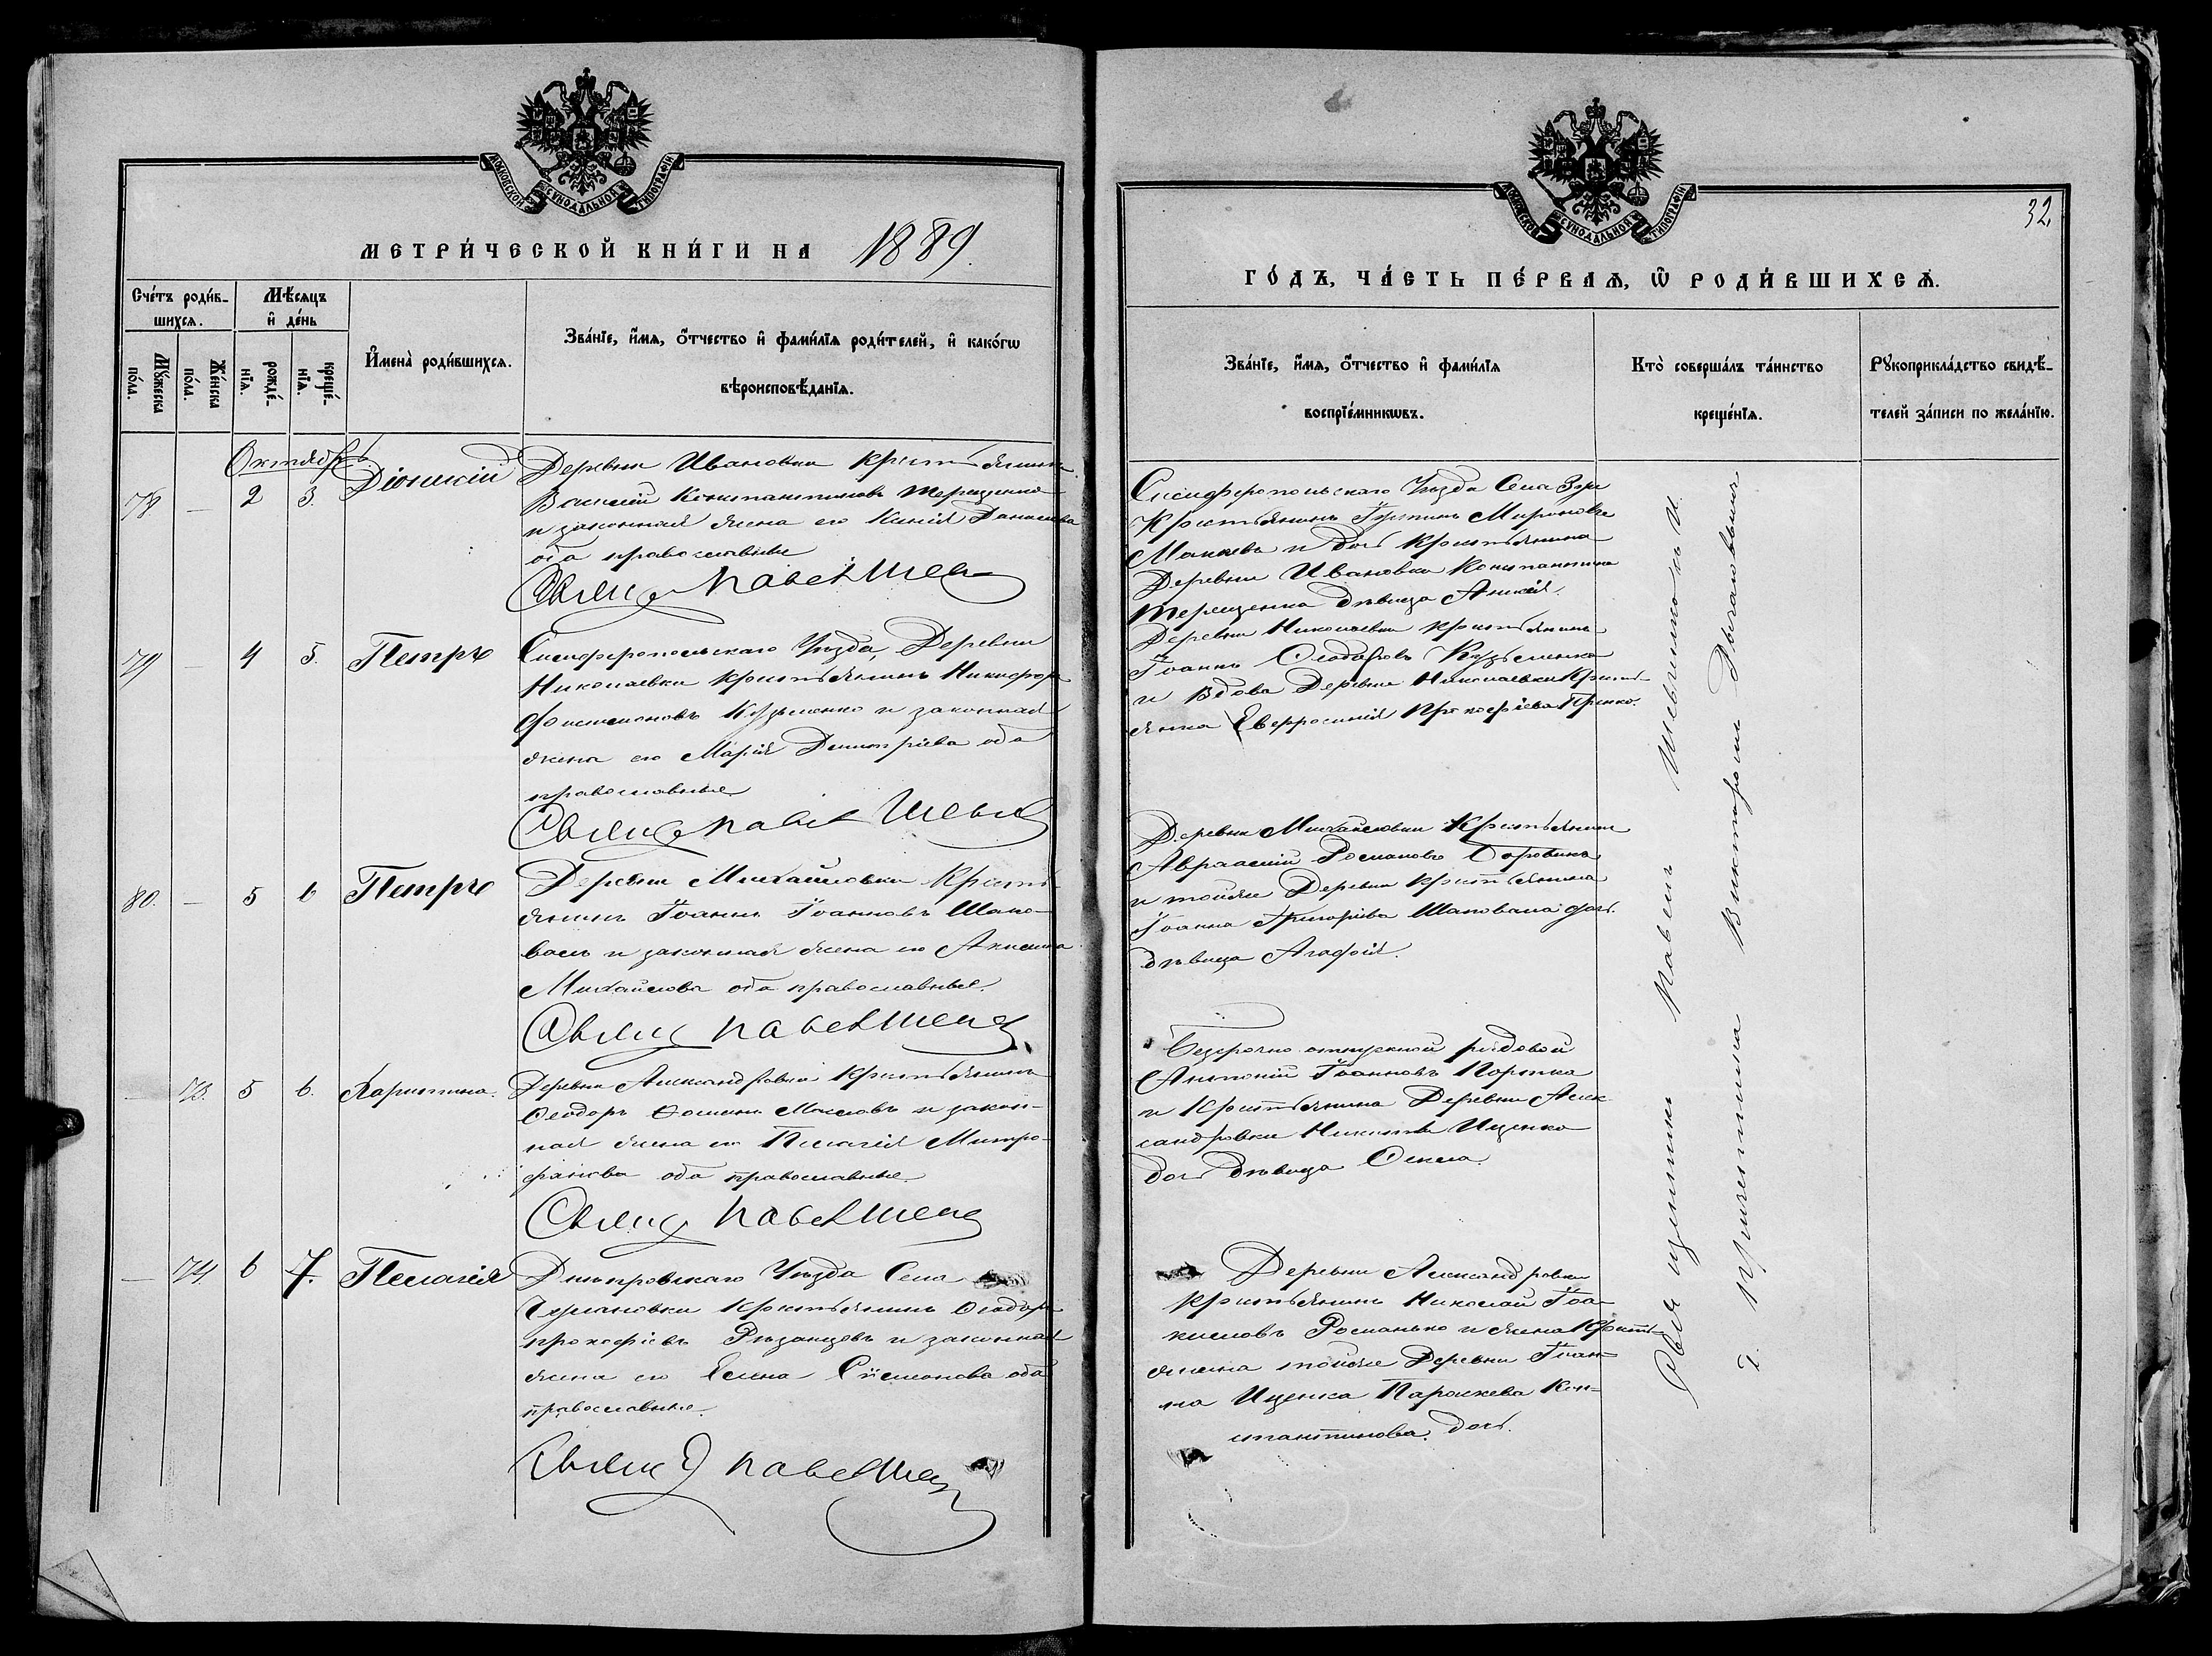 МОСКОВСКОЙ СУНОДАЛЬНОЙ ТИПОГРАФІИ
МЕТРИ́ЧЕСКОЙ КНИ́ГИ НА 1889.
Сче́тъ роди́в-
шихсѧ.
Мѣ́сѧцъ
и҆ де́нь
Мꙋ́жеска
по́ла.
Же́нска
по́ла.
рожде́-
нїѧ.
креще́-
нїѧ.
И҆мена̀ роди́вшихсѧ.
Зва́нїе, и҆́мѧ, ѻ҆́тчество и҆ фами́лїѧ роди́телей, и҆ како́гѡ
вѣроисповѣ́данїѧ.
Октябрь
78 — 2 3. Діонисій
Деревни Ивановки Крестьянинъ
Василій Константиновъ Терещенко
и законная жена его Ксенія
оба православные
Свящ Павел Шев
79 — 4 5. Петръ
Симферопольскаго Уѣзда, Деревни
Николаевки Крестьянинъ Никифоръ
Кузьменко и законная
жена его Марія Димитріева оба
православные
Свящ Павел Шевч
80. — 5 6 Петръ
Деревни Михайловки Крестъ-
янинъ Іоаннъ Іоанновъ Шапо-
валъ и законная жена его Акилина
Михайлова оба православные.
Свящ Павел Шевч
— 73. 5 6. Харитина.
Деревни Александровки Крестьянинъ
Ѳеодоръ и закон-
ная жена его Пелагія Митро-
фанова оба православные.
Свящ Павел Шевч
— 74. 6 7. Пелагія
Днѣпровскаго Уѣзда Села
Чулановки Крестьянинъ Ѳеодоръ
Прокофіевъ Рѣзанцевъ и законная
жена его Елена Сѵмеонова оба
православные.
Свящ Павел Шев
МОСКОВСКОЙ СУНОДАЛЬНОЙ ТИПОГРАФІИ
32.
ГО́ДЪ, ЧА́СТЬ ПЕ́РВАѦ, Ѡ҆ РОДИ́ВШИХСѦ.
Зва́нїе, и҆́мѧ, ѻ҆́тчество и҆ фами́лїѧ
воспрїе́мникѡвъ.
Кто̀ соверша́лъ та́инство
креще́нїѧ.
Рꙋкоприкла́дство свидѣ́-
телей за́писи по жела́нїю.
Симферопольскаго Уѣзда Села Зуи
Крестьянинъ Мироновъ
и дочь Крестьянина
Деревни Ивановки Константина
Терещенка дѣвица
Деревни Николаевки Крестьянинъ
Іоаннъ Ѳеодоровъ Кузьменко
и Вдова Деревни Николаевки Кресть-
янка Евфросинія Прокофіева
Деревни Михайловки Крестьянинъ
Авраамій Романовъ
и тойже Деревни Крестьянина
Іоанна Григоріева Шаповала дочь
дѣвица Агафія.
Безсрочно отпускной рядовой
Антоній Іоанновъ
и Крестьянина Деревни Алек-
сандровки Никиты Ищенко
дочь дѣвица
Деревни Александровки
Крестьянинъ Николай Іоа-
кимовъ Романько и жена Кресть-
янина тойже Деревни Іоан-
на Ищенка Параскева Кон-
стантинова дочь.
Священникъ Павелъ Шевченко и
Викторъ